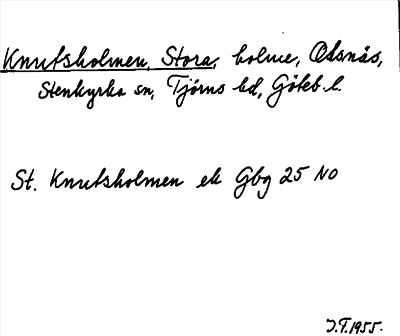 Knutsholmen, Stora, holme, Olsnäs,
Stenkyrka sn, Tjörns hd, Göteb. l.
St. Knutsholmen ek Gbg 25 NO
J.F. 1955.